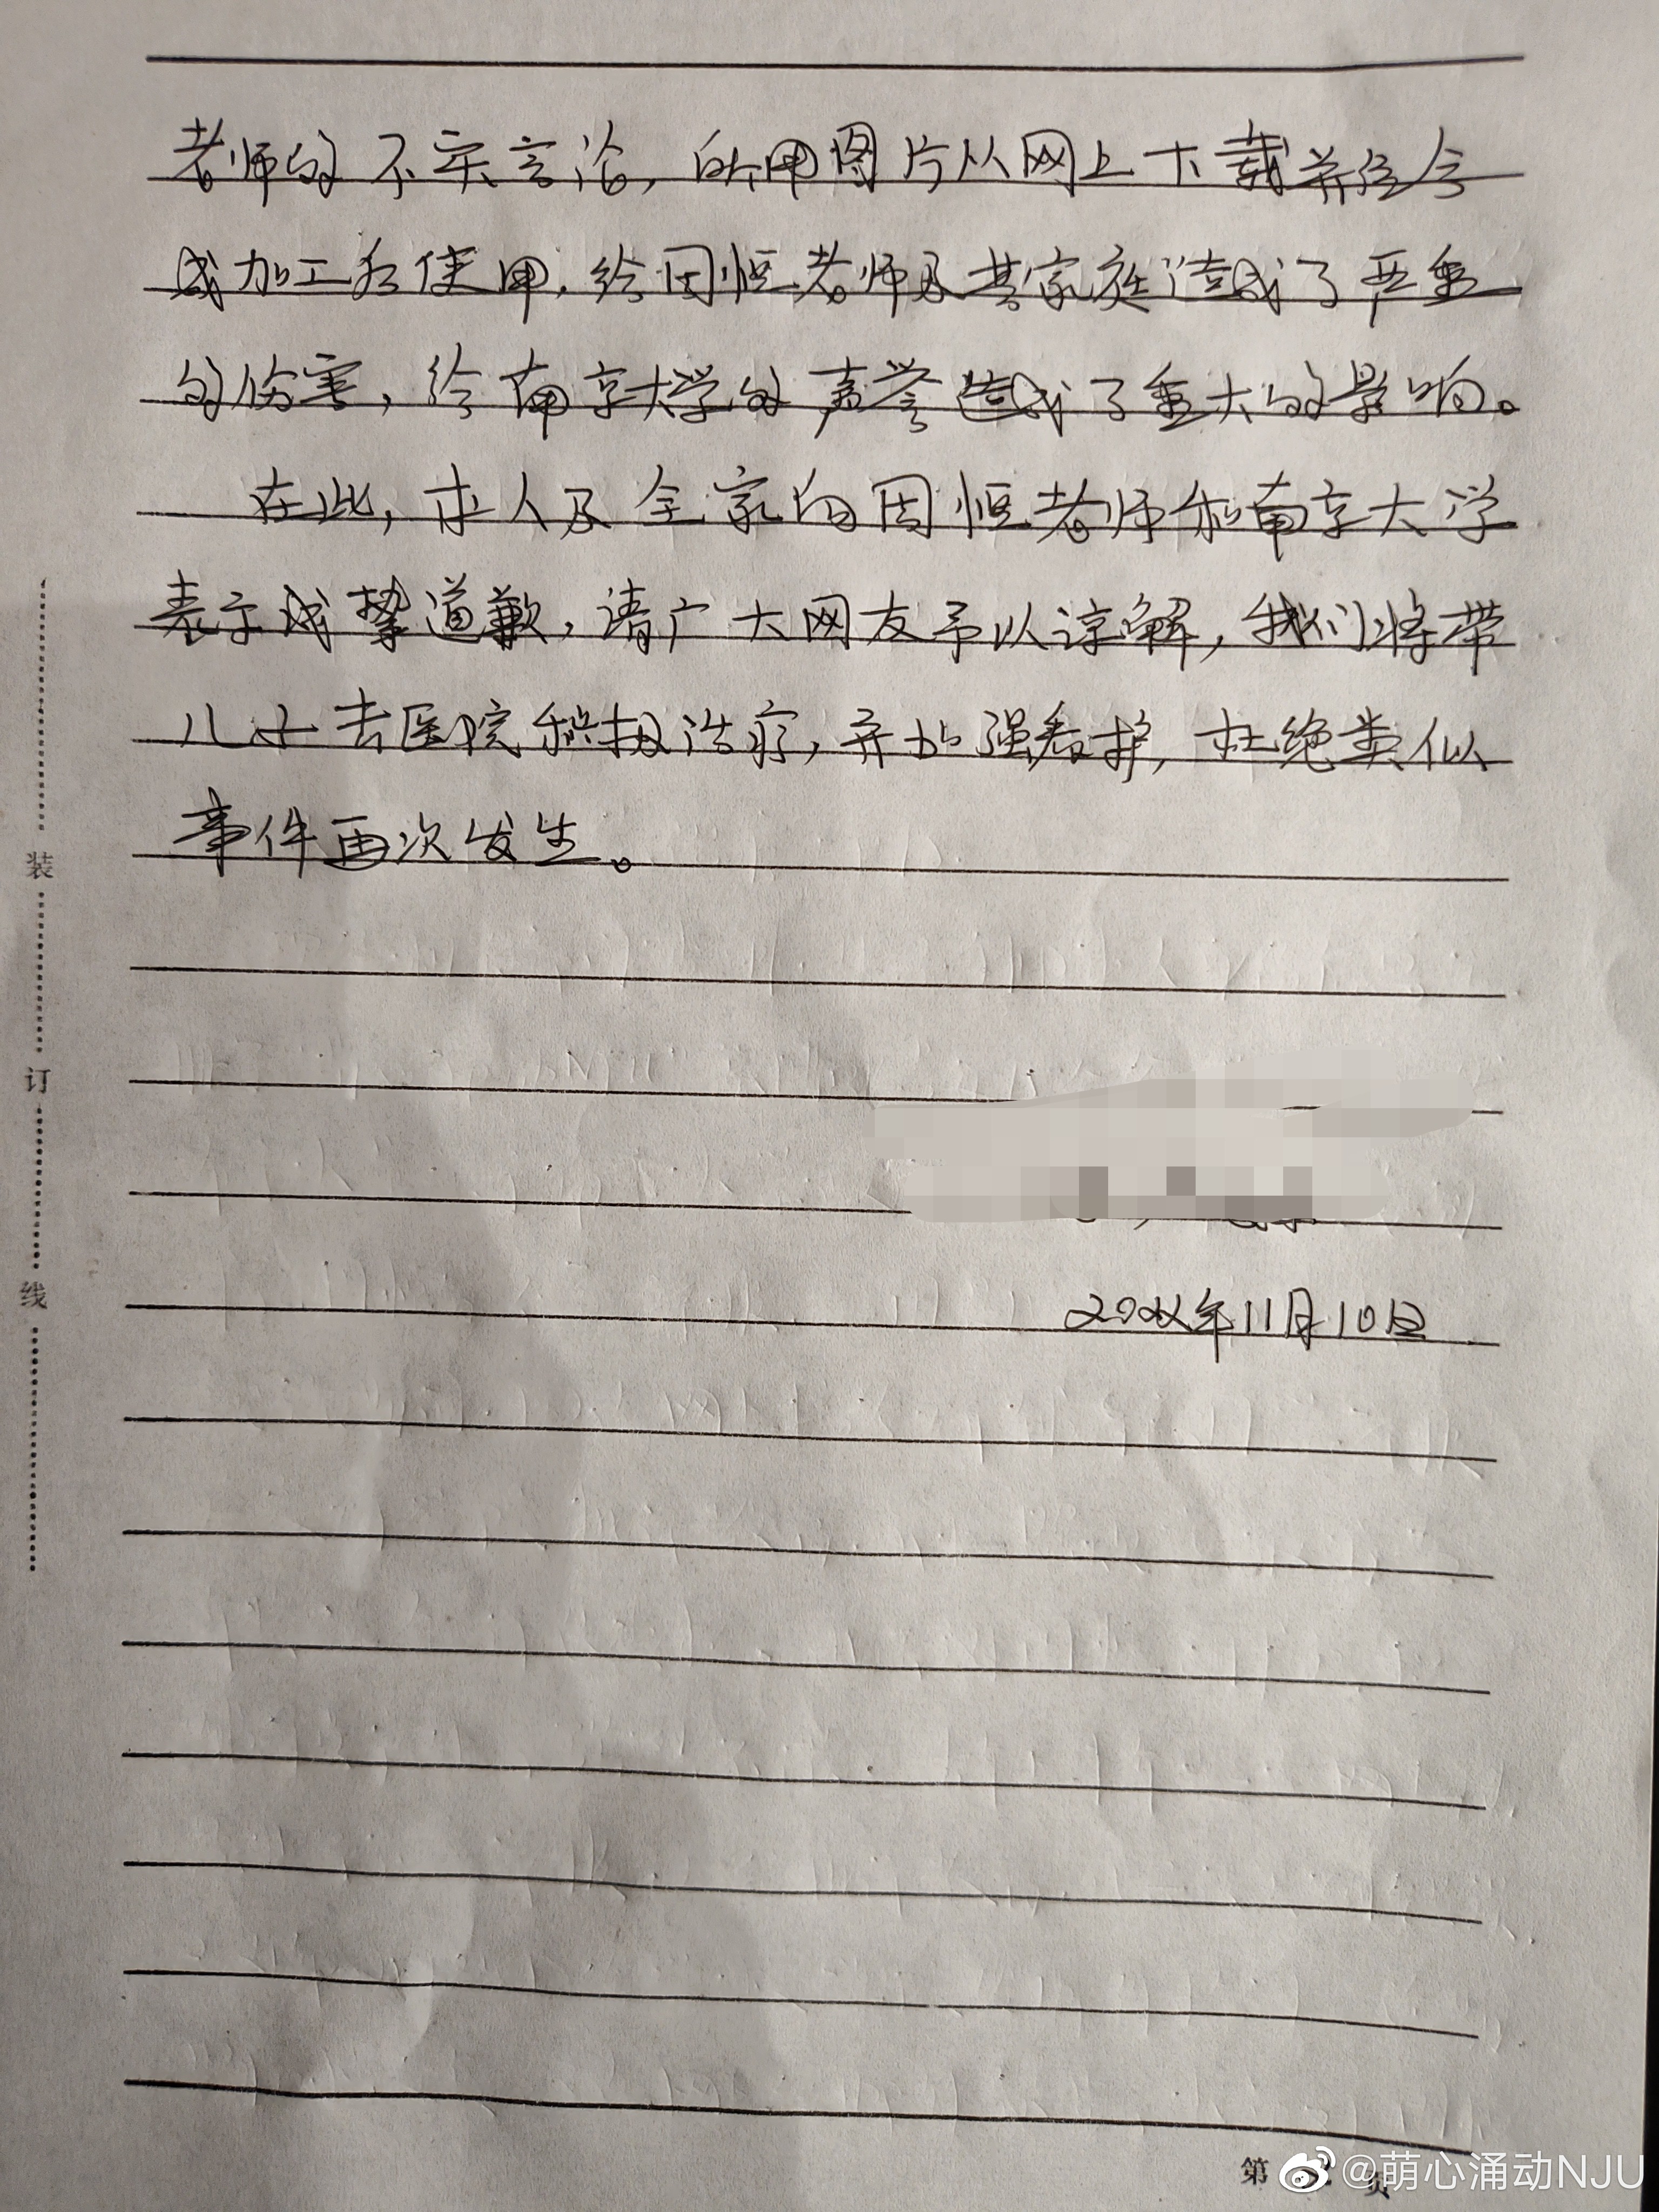 老师的不实言论,所用图片从网上下载并经合
成加工后使用,给周恒老师及其家庭造成了严重
的伤害,给南京大学的声誉造成了重大的影响。
在此,本人及全家向周恒老师和南京大学
表示诚挚道歉,请广大网友予以谅解,我们将带
儿子去医院积极治疗,并加强看护,杜绝类似
事件再次发生。
装
订
线
2022年11月10日
第 页
@萌心涌动NJU